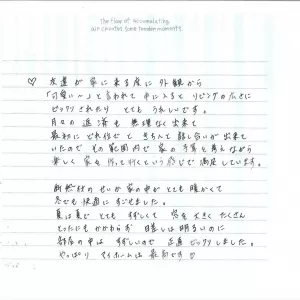 The flow of accumulating
air created some tender moments.
♡ 友達が家に来る度に外観から
「可愛い〜」と言われて中に入ると リビングの広さに
ビックリされたり とてもうれしいです。
月々の返済も無理なく出来て
最初にどれ位でと きちんと話し合いが出来て
いたので その範囲内で 家の予算と考えながら
楽しく 家も作って行くという感じで満足しています。
断熱材のせいか家の中がとても暖かくて
冬でも快適にすごせました。
夏は夏で とても すずしくて 窓を大きく たくさん
とったにもかかわらず 日差しは明るいのに
部屋の中は すずしいので 正直ビックリしました。
やっぱり マイホームは最高です